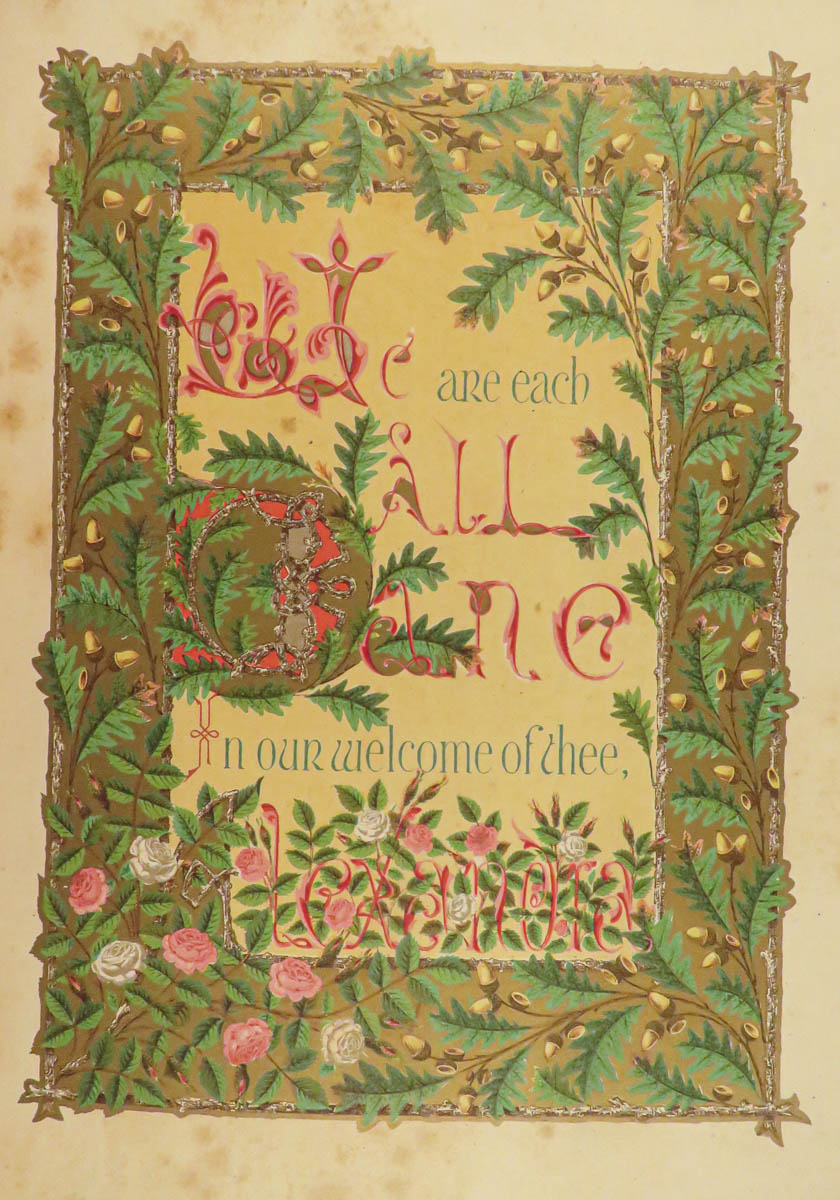 We are each
All
Dane
In our welcome of thee,
Alexandra